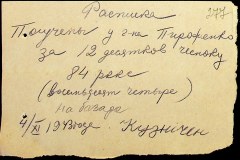 277
Расписка
Получены у г-на Пироженко
за 12 десятков чесноку
84 рейс
(восемьдесят четыре)
4/XI 1943 года. Кузнічен